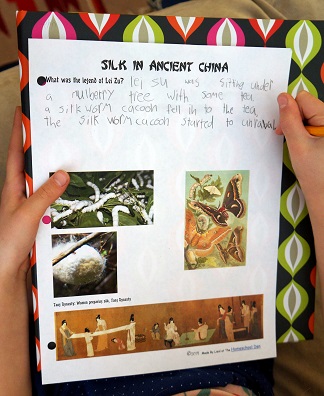 SILK IN ANCIENT CHINA
What was the lejend of Lei Zu? lei su was sitting under
a mulberry tree with some tea
a silk worm cacooh fell ih to the tea
The silk worm cacooh started to unraval
Tang Dynasty. Women preparing silk, Tang Dynasty
Made By Liesl at The Homeschool Den